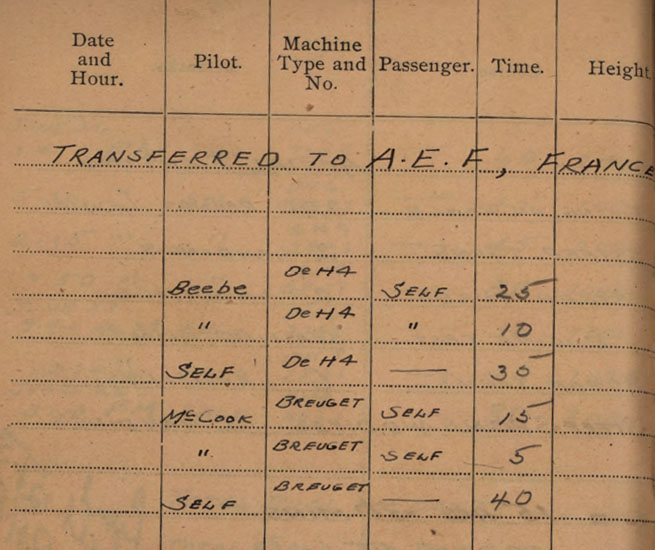 Date and Hour. Pilot. Machine Type and No. Passenger. Time. Height.
TRANSFERRED TO A.E.F., FRANCE
Beebe DeH4 SELF 25
" DeH4 " 10
SELF DeH4 — 35
McCOOK BREUGET SELF 15
" BREUGET SELF 5
SELF BREUGET — 40